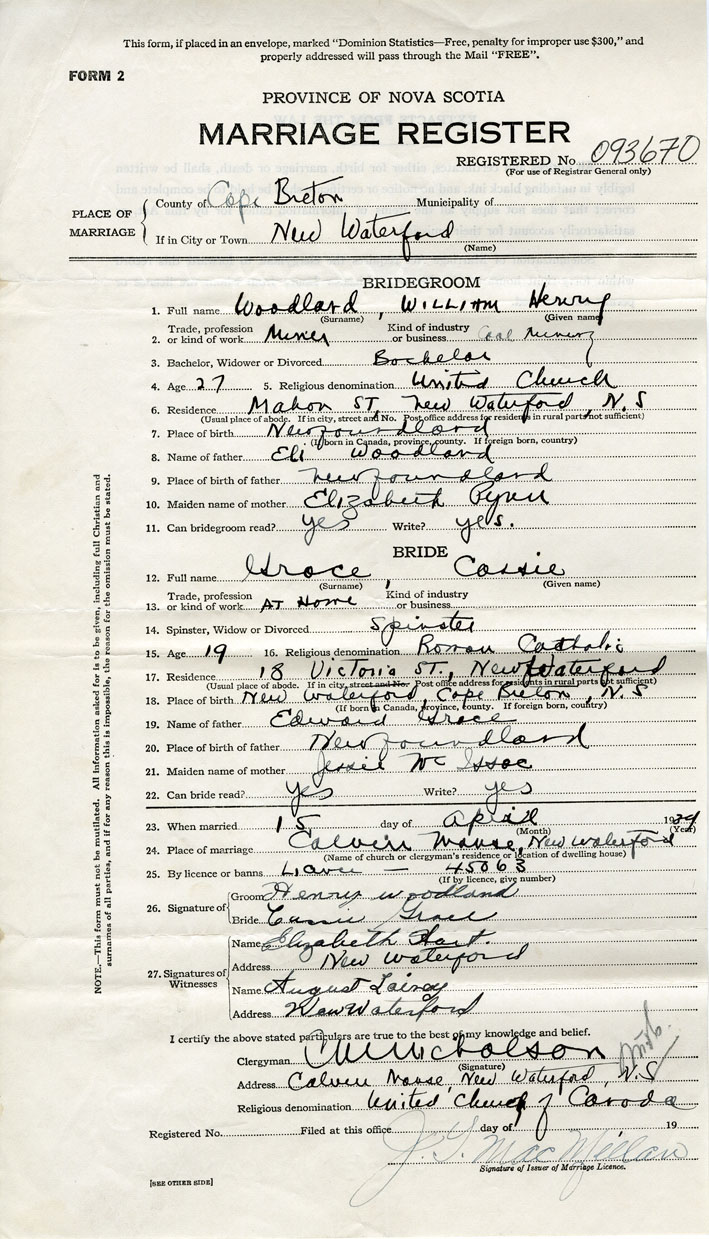 This form, if placed in an envelope, marked “Dominion Statistics—Free, penalty for improper use $300,” and
properly addressed will pass through the Mail “FREE”.
FORM 2
PROVINCE OF NOVA SCOTIA
MARRIAGE REGISTER
REGISTERED No. 093670
(For use of Registrar General only)
PLACE OF MARRIAGE
County of Cape Breton Municipality of
If in City or Town New Waterford
(Name)
BRIDEGROOM
1. Full name Woodland, WILLIAM Henry
(Surname) (Given name)
Trade, profession Kind of industry
2. or kind of work Miner or business Coal mining
3. Bachelor, Widower or Divorced Bachelor
4. Age 27 5. Religious denomination United Church
6. Residence Mahon ST, New Waterford, N.S
(Usual place of abode. If in city, street and No. Post office address for residents in rural parts not sufficient)
7. Place of birth Newfoundland
(If born in Canada, province, county. If foreign born, country)
8. Name of father Eli Woodland
9. Place of birth of father Newfoundland
10. Maiden name of mother Elizabeth Pynn
11. Can bridegroom read? yes Write? yes.
BRIDE
12. Full name Grace, Cassie
(Surname) (Given name)
Trade, profession Kind of industry
13. or kind of work AT Home or business
14. Spinster, Widow or Divorced Spinster
15. Age 19 16. Religious denomination Roman Catholic
17. Residence 18 Victoria ST., New Waterford
(Usual place of abode. If in city, street and No. Post office address for residents in rural parts not sufficient)
18. Place of birth New Waterford, Cape Breton, N.S
(If born in Canada, province, county. If foreign born, country)
19. Name of father Edward Grace
20. Place of birth of father Newfoundland
21. Maiden name of mother Jessie Mc Issac
22. Can bride read? yes Write? yes
23. When married 15 day of April 19
(Month) (Year)
24. Place of marriage Calvin Manse, New Waterford
(Name of church or clergyman's residence or location of dwelling house)
25. By licence or banns — 45063
(If by licence, give number)
26. Signature of
Groom Henry woodland
Bride Cassie Grace
27. Signatures of Witnesses
Name Elizabeth Hart.
Address New Waterford
Name August
Address New Waterford
I certify the above stated particulars are true to the best of my knowledge and belief.
Clergyman Nicholson
(Signature)
Address Calvin Manse, New Waterford, N.S
Religious denomination United Church of Canada
Registered No. Filed at this office day of 19
J. MacMillan
Signature of Issuer of Marriage Licence.
[SEE OTHER SIDE]
NOTE.—This form must not be mutilated. All information asked for is to be given, including full Christian and
surnames of all parties, and if for any reason this is impossible, the reason for the omission must be stated.